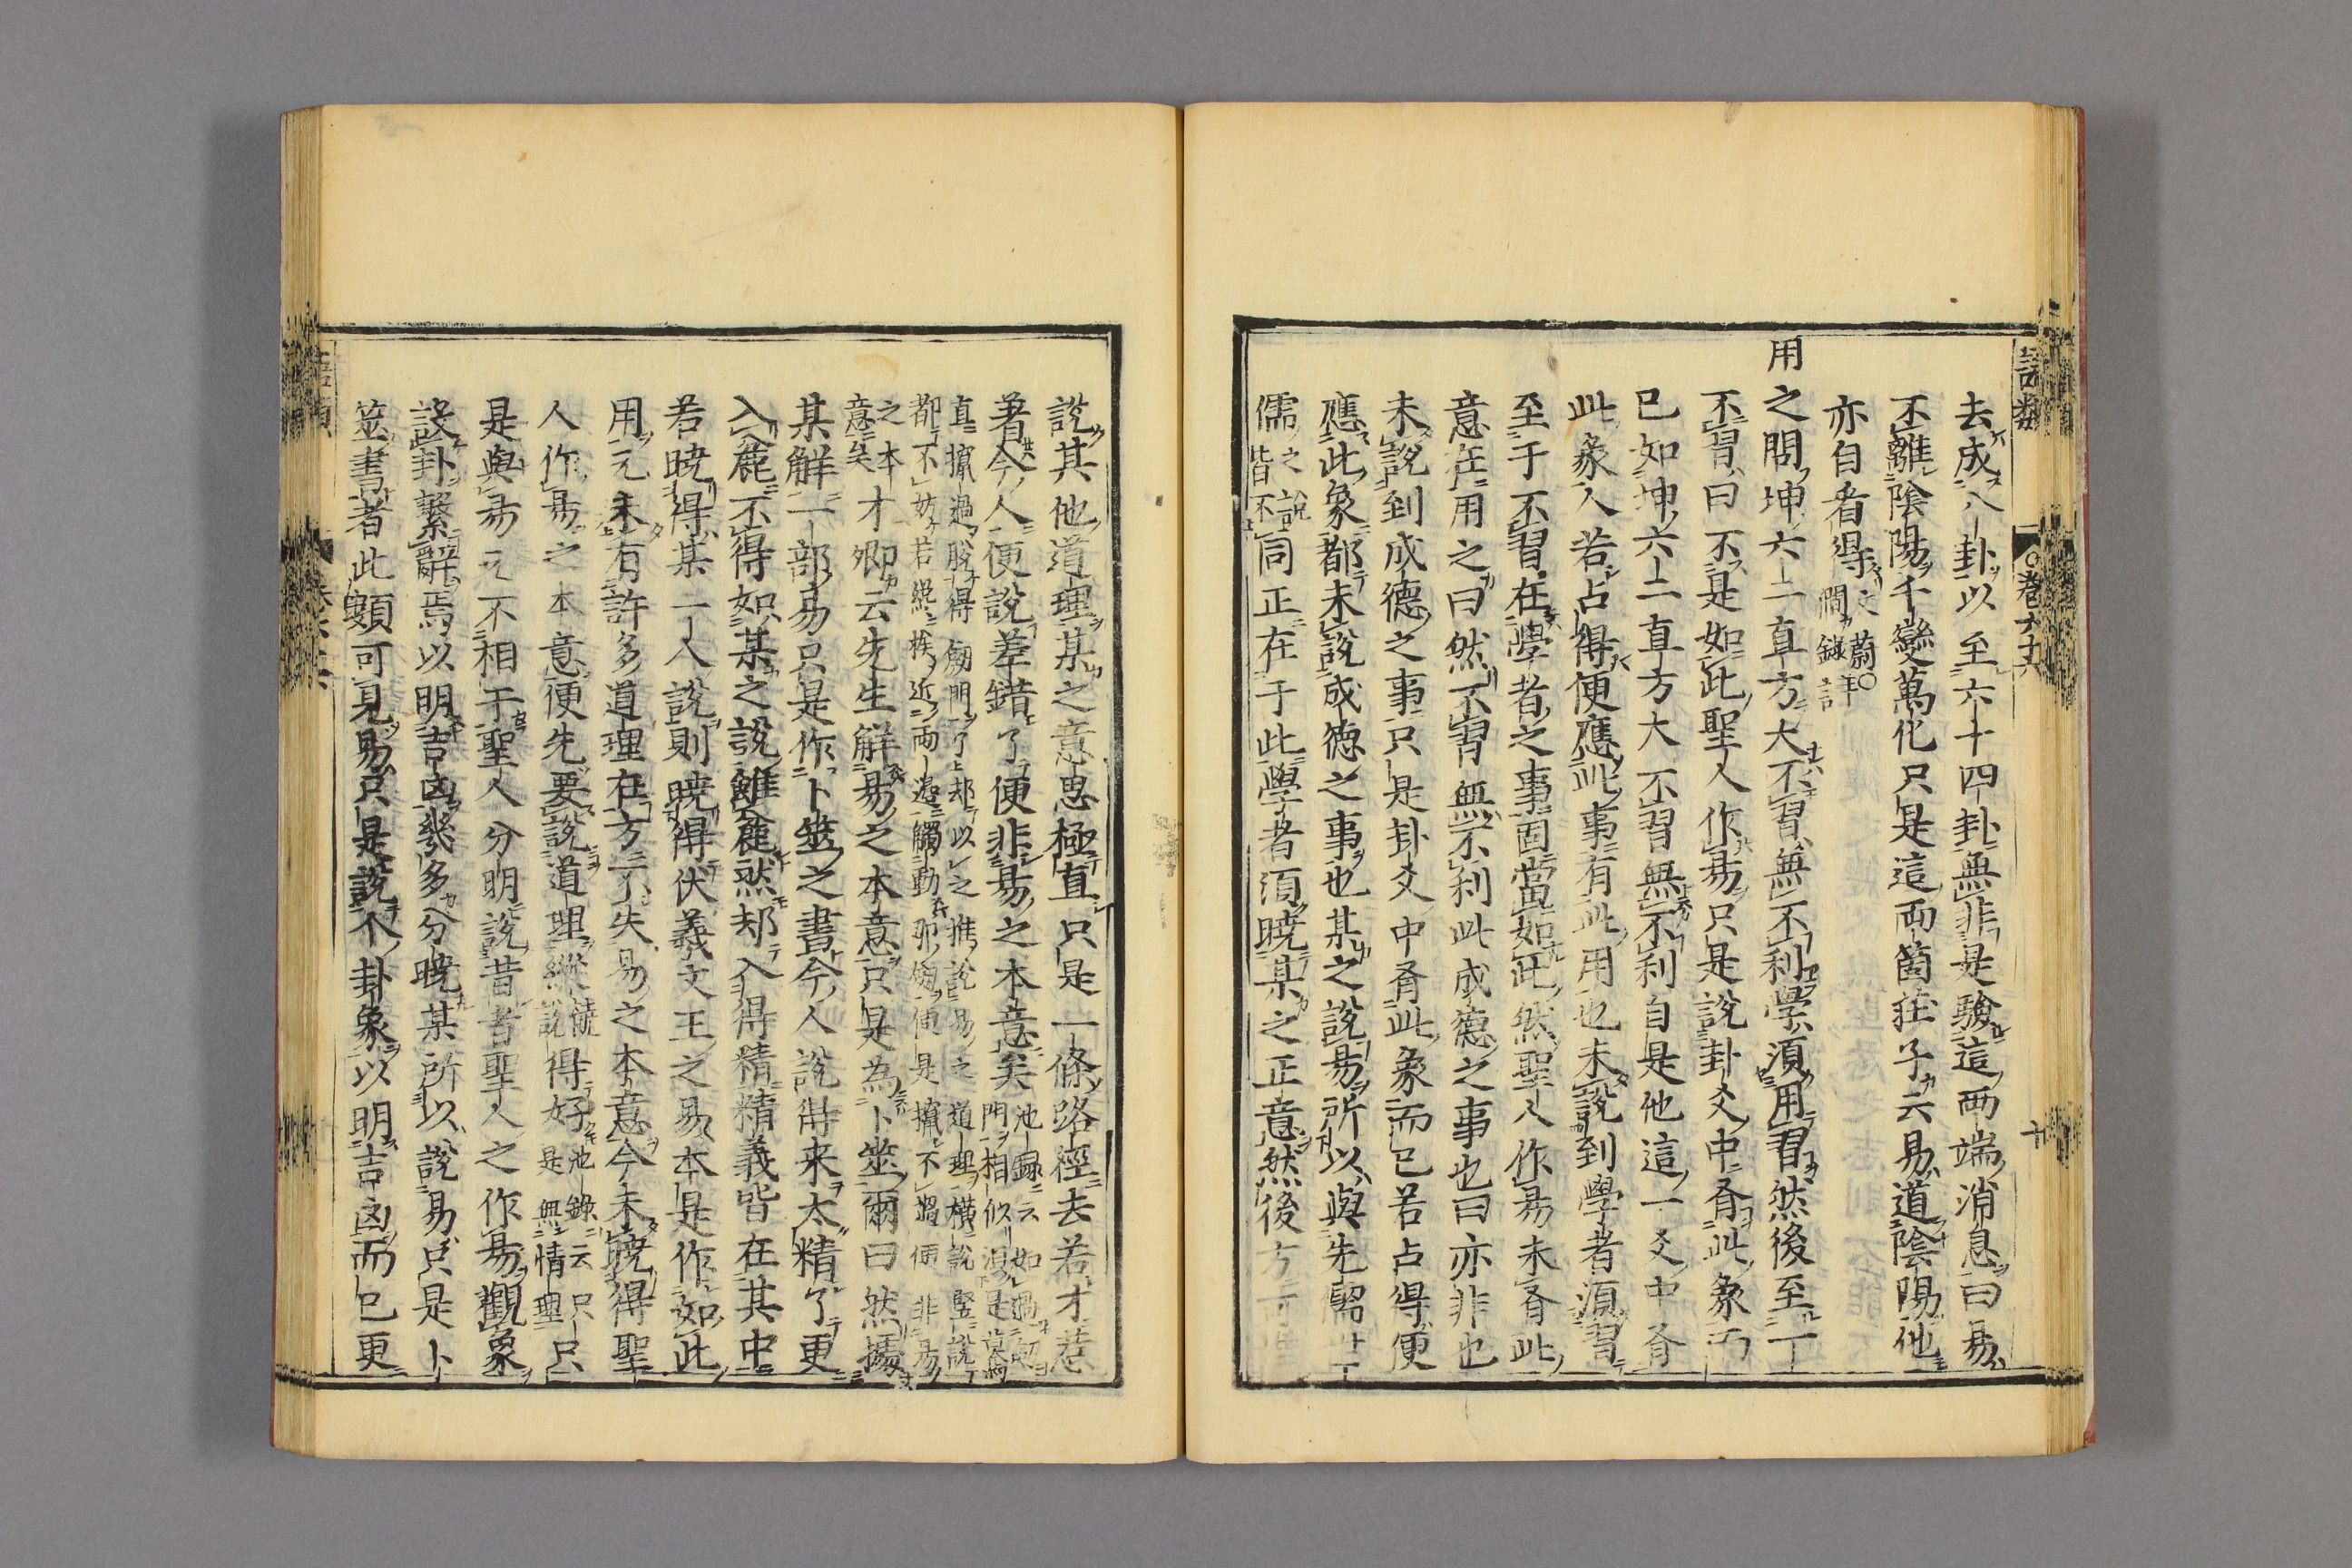 語類 卷六十六 十
去成八卦以至六十四卦無非是驗這兩端消息曰易
不離陰陽千變萬化只是這兩箇莊子云易道陰陽他
亦自看得
用之問坤六二直方大不習無不利學須用習然後至丁
不習曰不是如此聖人作易只是說卦爻中有此象而
已如坤六二直方大不習無不利自是他這一爻中有
此象人若占得便應此事有此用也未說到學者須習
至于不習在學者之事固當如此然聖人作易未有此
意在用之曰然不習無不利此成德之事也曰亦非也
未說到成德之事只是卦爻中有此象而已若占得便
應此象都未說成德之事也某之說易所以與先儒世丁
儒之說皆不同正在于此學者須曉某之正意然後方可
說其他道理某之意思極直只是一條路徑去若才惹
著今人便說差錯了便非易之本意矣池錄云如過劒
門相似須是
直攛過脫得劒門了却以之推說易之道理橫說豎說丁
都不妨若纔挨近兩邊觸動那邊便是攛不過便非易
之本
意矣才卿云先生解易之本意只是為卜筮爾曰然據
某解一部易只是作卜筮之書今人說得来太精了更
入麄不得如某之說雖麄然却入得精精義皆在其中
若曉得某一人說則曉得伏羲文王之易本是作如此
用元未有許多道理在方不失易之本意今未曉得聖
人作易之本意便先要說道理縱饒說得好池錄云只
是無情理只
是與易元不相干聖人分明說昔者聖人之作易觀象
設卦繫辭焉以明吉凶幾多分曉某所以說易只是卜
筮書者此類可見易只是說个卦象以明吉凶而已更